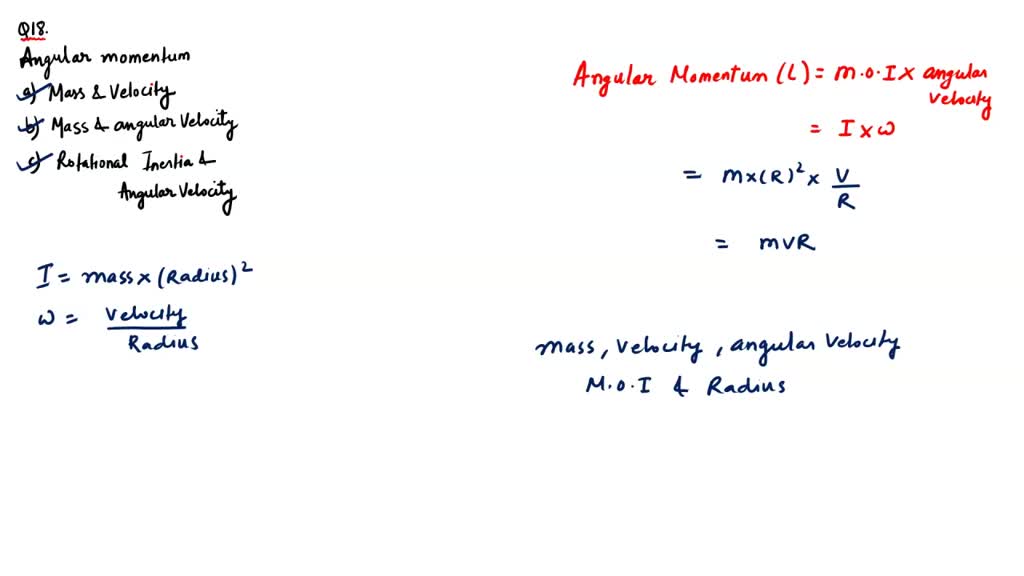 Q18.
Angular momentum
a) Mass & Velocity
b) Mass & angular Velocity
c) Rotational Inertia &
Angular Velocity
I = mass x (Radius)²
ω = Velocity / Radius
Angular Momentum (L) = m.o.I x angular
velocity
= I x ω
= m x (R)² x V / R
= mVR
mass, velocity, angular velocity
M.O.I & Radius